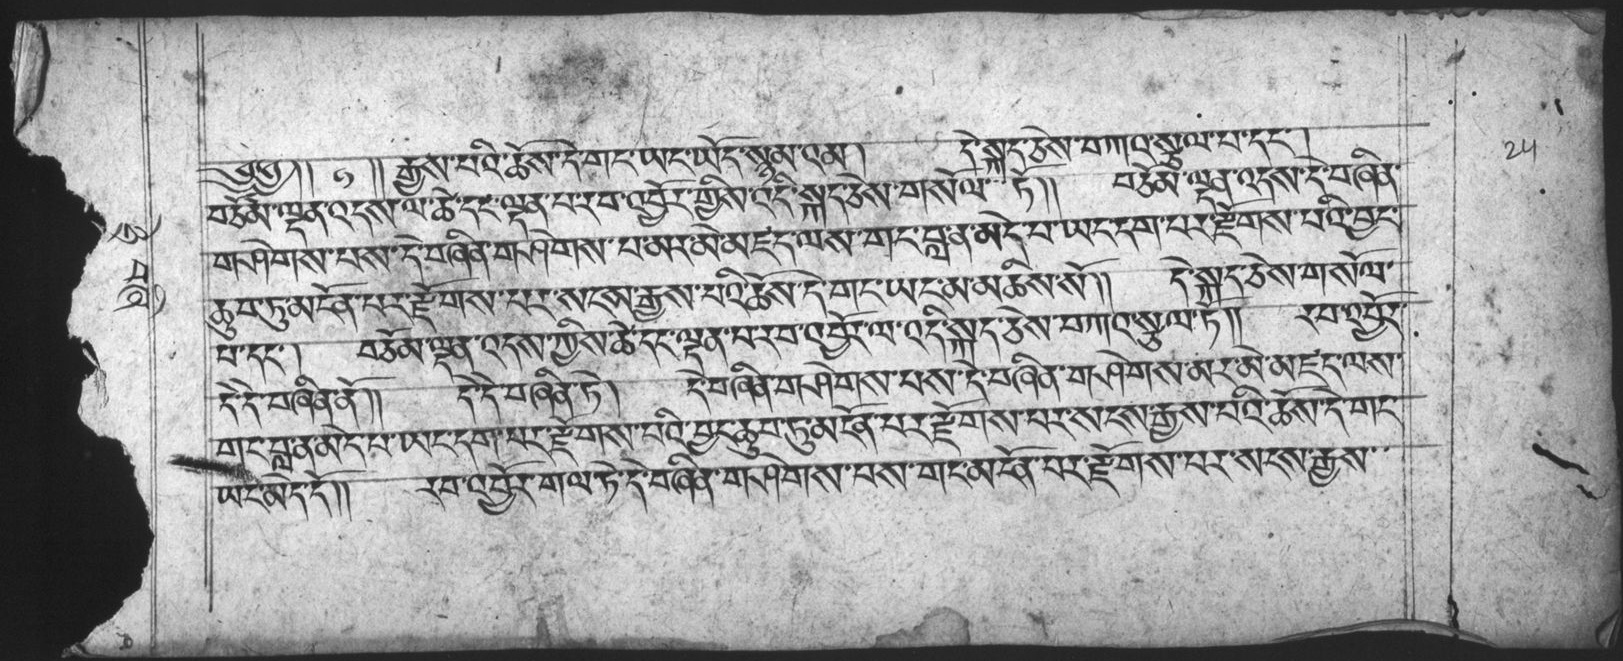 ༄༅།། ༡ །། རྒྱས་པའི་ཆོས་དེ་གང་ཡང་ཡོད་སྙམ་འམ། དེ་སྐད་ཅེས་བཀའ་སྩལ་པ་དང་། 24
བཅོམ་ལྡན་འདས་ལ་ཚེ་དང་ལྡན་པ་རབ་འབྱོར་གྱིས་འདི་སྐད་ཅེས་གསོལ་ཏོ།། བཅོམ་ལྡན་འདས་དེ་བཞིན་
གཤེགས་པས་དེ་བཞིན་གཤེགས་པ་མར་མེ་མཛད་ལས་གང་བླ་ན་མེད་པ་ཡང་དག་པར་རྫོགས་པའི་བྱང་
ཆུབ་ཏུ་མངོན་པར་རྫོགས་པར་སངས་རྒྱས་པའི་ཆོས་དེ་གང་ཡང་མ་མཆིས་སོ།། དེ་སྐད་ཅེས་གསོལ་
པ་དང་། བཅོམ་ལྡན་འདས་ཀྱིས་ཚེ་དང་ལྡན་པ་རབ་འབྱོར་ལ་འདི་སྐད་ཅེས་བཀའ་སྩལ་ཏོ།། རབ་འབྱོར་
དེ་དེ་བཞིན་ནོ།། དེ་དེ་བཞིན་ཏེ། དེ་བཞིན་གཤེགས་པས་དེ་བཞིན་གཤེགས་མར་མེ་མཛད་ལས་
གང་བླ་ན་མེད་པ་ཡང་དག་པར་རྫོགས་པའི་བྱང་ཆུབ་ཏུ་མངོན་པར་རྫོགས་པར་སངས་རྒྱས་པའི་ཆོས་དེ་གང་
ཡང་མེད་དོ།། རབ་འབྱོར་གལ་ཏེ་དེ་བཞིན་གཤེགས་པས་གང་མངོན་པར་རྫོགས་པར་སངས་རྒྱས་